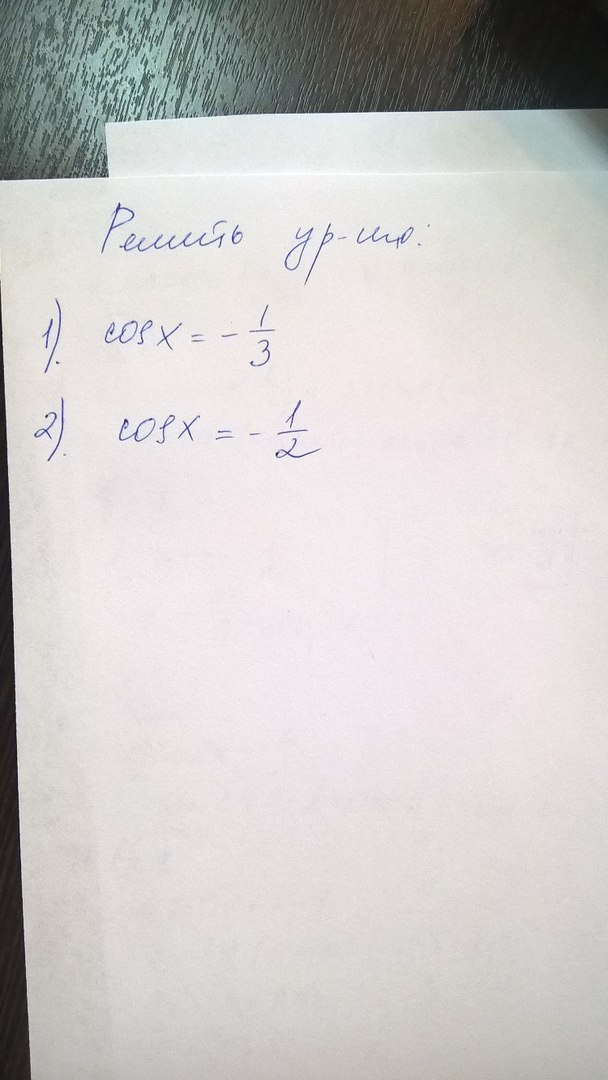 Решить ур-ию:
1). cos x = - 1/3
2). cos x = - 1/2